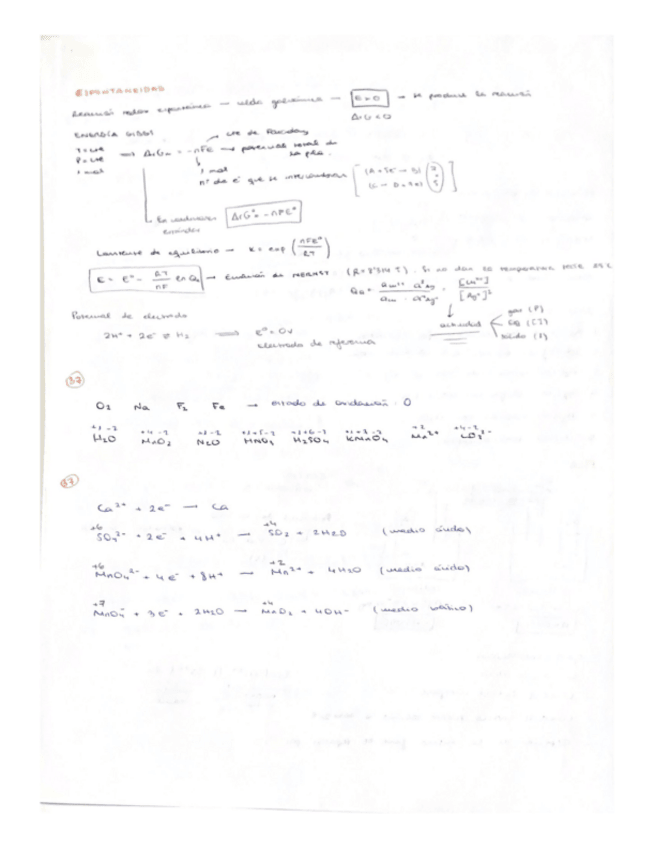 ESPONTANEIDAD
Reacción redox espontánea → celda galvánica → E>0 → se produce la reacción
ΔrG<0
ENERGÍA GIBBS
→ cte de Faraday
T=cte
P=cte ⇒ ΔrG = -nFE → potencial de la pila.
1 mol
1 mol
nº de e⁻ que se intercambian
En condiciones estándar ΔrG° = -nFE°
Constante de equilibrio → K = exp (nFE°/RT)
E = E° - RT/nF ln Q → Ecuación de NERNST. (R=8'314 J). Si no dan la temperatura
[Cu²⁺]
[Ag⁺]²
actividad
gas (P)
sólido (1)
Potencial de electrodo
2H⁺ + 2e⁻ ⇌ H₂ ⟹ E°=0V
electrodo de referencia
37
O₂ Na F₂ Fe → estado de oxidación: 0
H₂O MnO₂ N₂O HNO₃ H₂SO₄ KMnO₄ Mn²⁺ CO₃²⁻
Ca²⁺ + 2e⁻ → Ca
+6 +4
SO₄²⁻ + 2e⁻ + 4H⁺ → SO₂ + 2H₂O (medio ácido)
+6 +2
MnO₄²⁻ + 4e⁻ + 8H⁺ → Mn²⁺ + 4H₂O (medio ácido)
+7 +4
MnO₄⁻ + 3e⁻ + 2H₂O → MnO₂ + 4OH⁻ (medio básico)